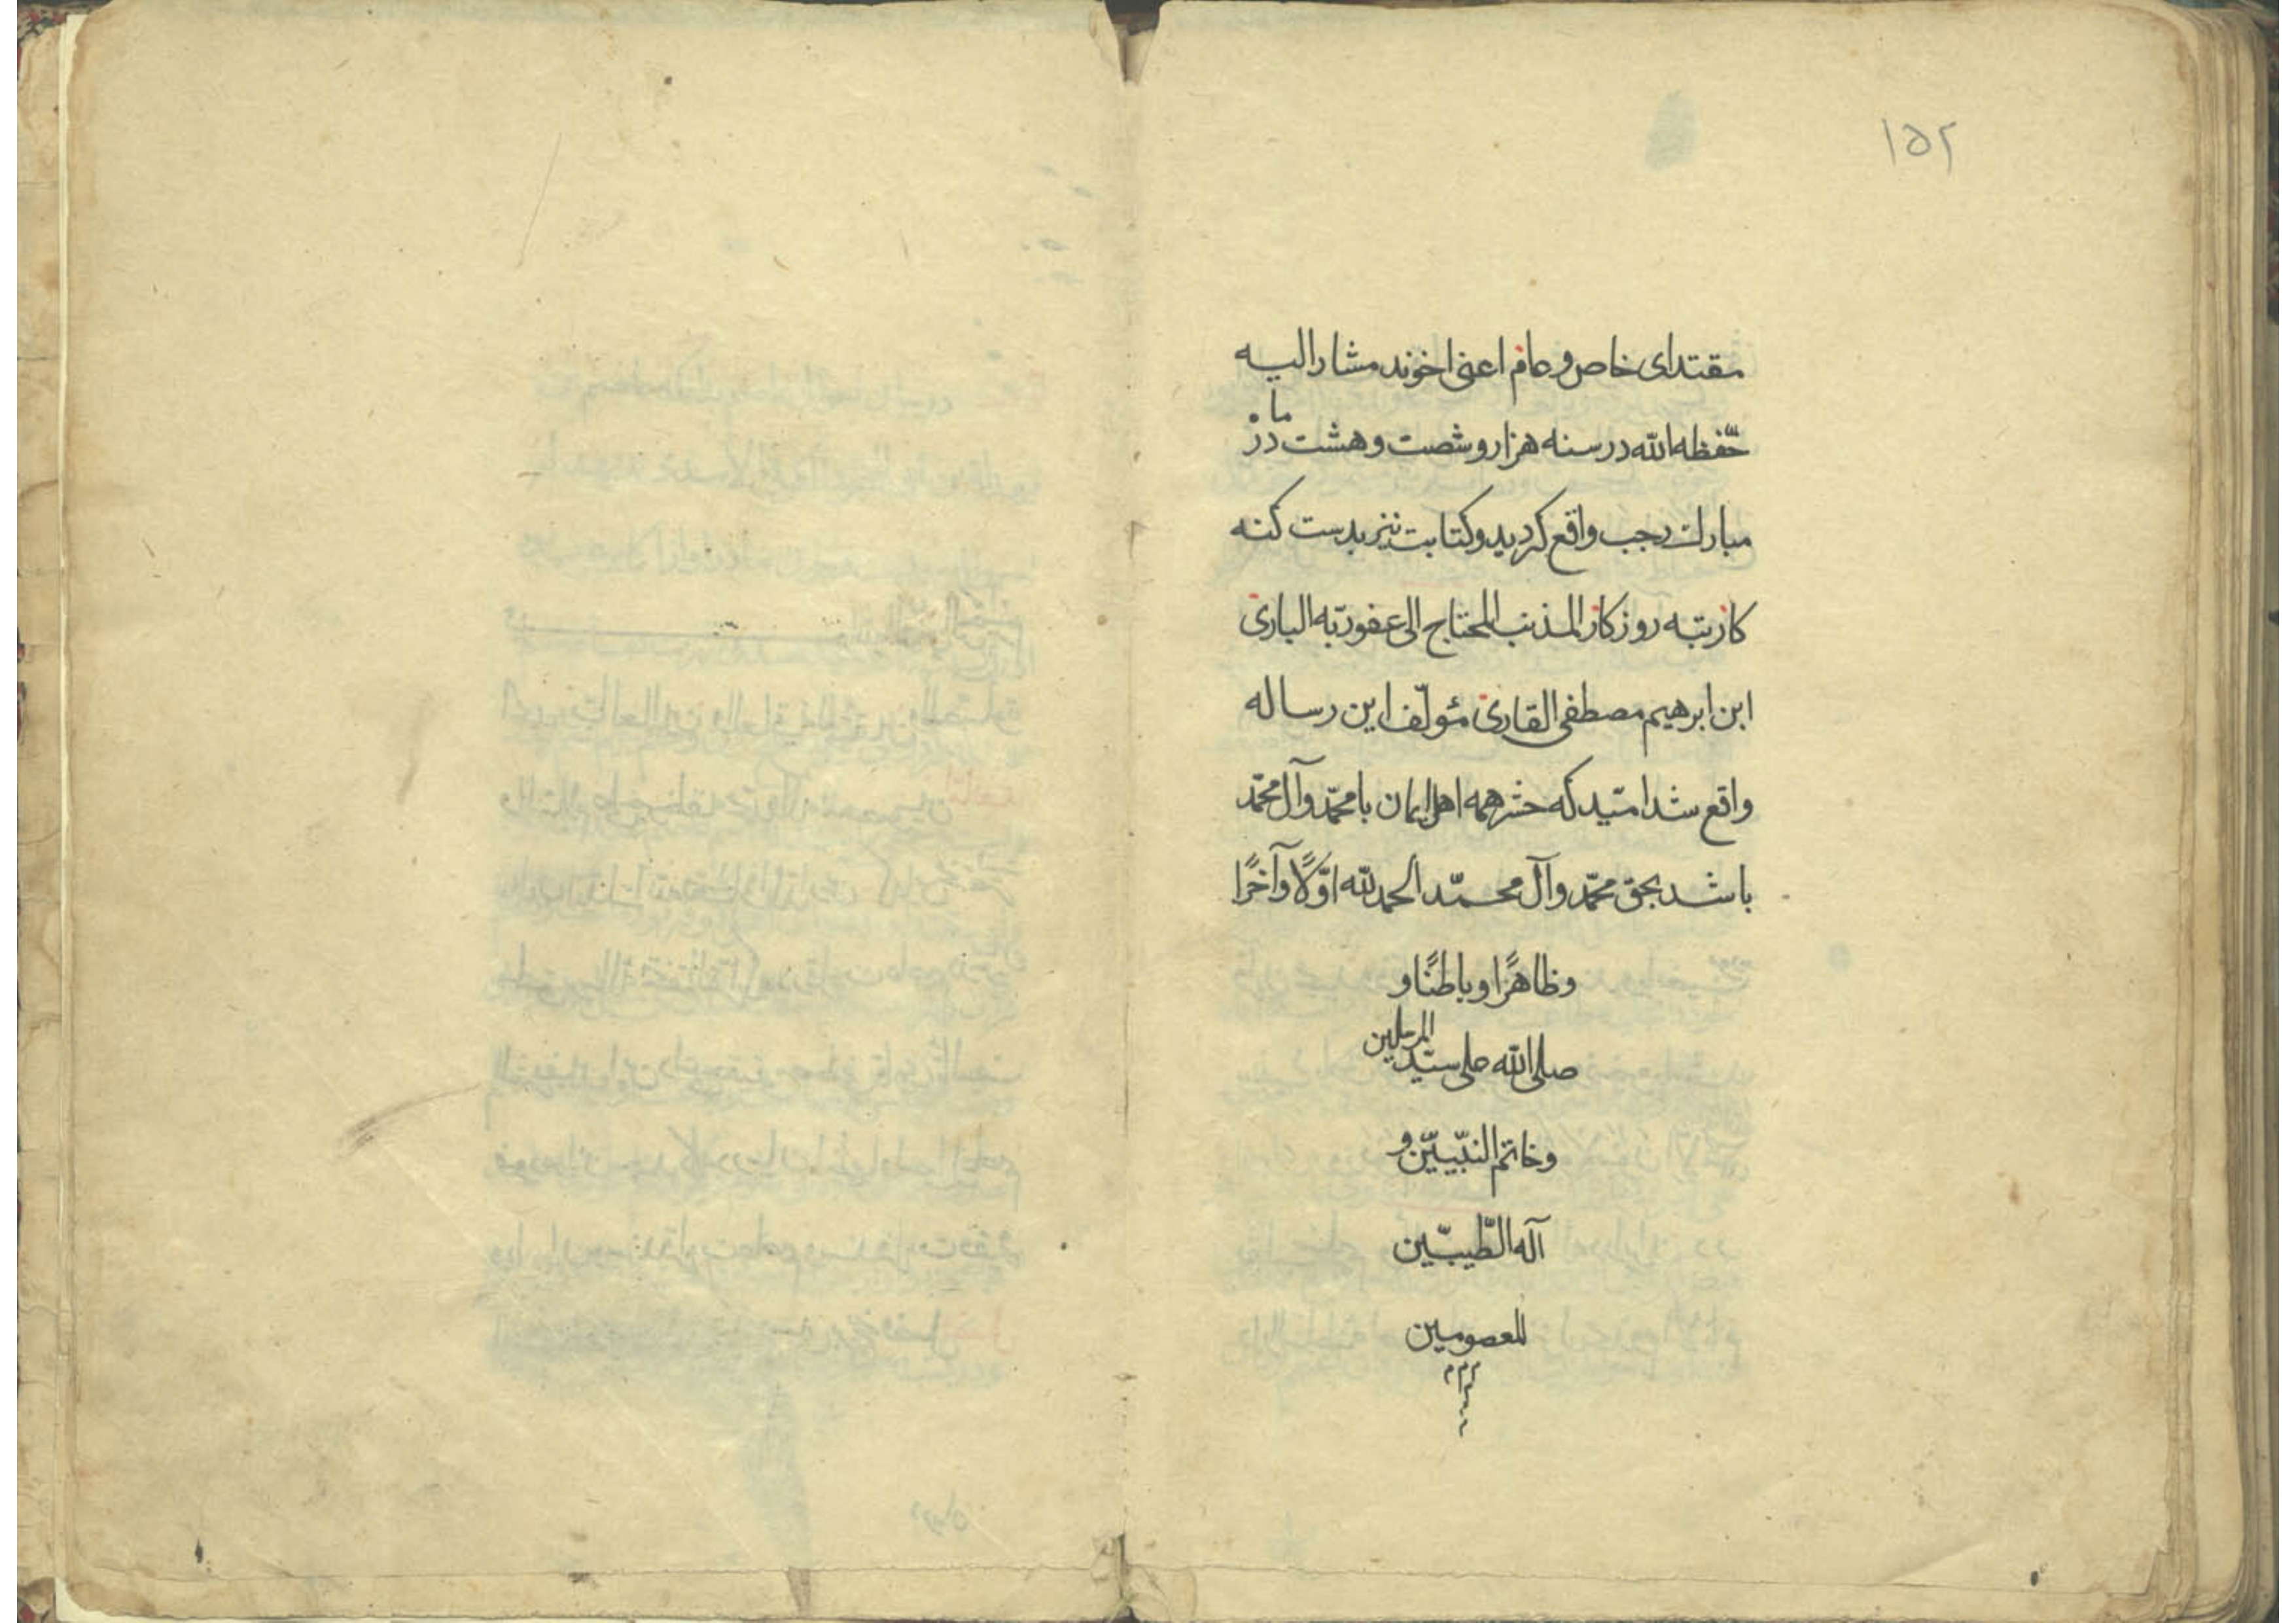 ۱۵۲
مقتدای خاص و عام اعنی اخوند مشار الیه
حفظه الله در سنه هزار و شصت و هشت در ماه
مبارك رجب واقع کردید و کتابت نیز بدست کنه
کار تبه روزکار المذنب المحتاج الی عفو ربّه الباری
ابن ابرهیم مصطفی القاری مؤلّف این رساله
واقع شد امّید که حشر همه اهل ایمان با محمّد وآل محمّد
باشد بحق محمّد وآل محمّد الحمد لله اوّلًا وآخرًا
وظاهرًا وباطنًا و
صلی الله علی سیّد المرسلین
وخاتم النبّییّن و
آله الطّیبّین
المعصومین